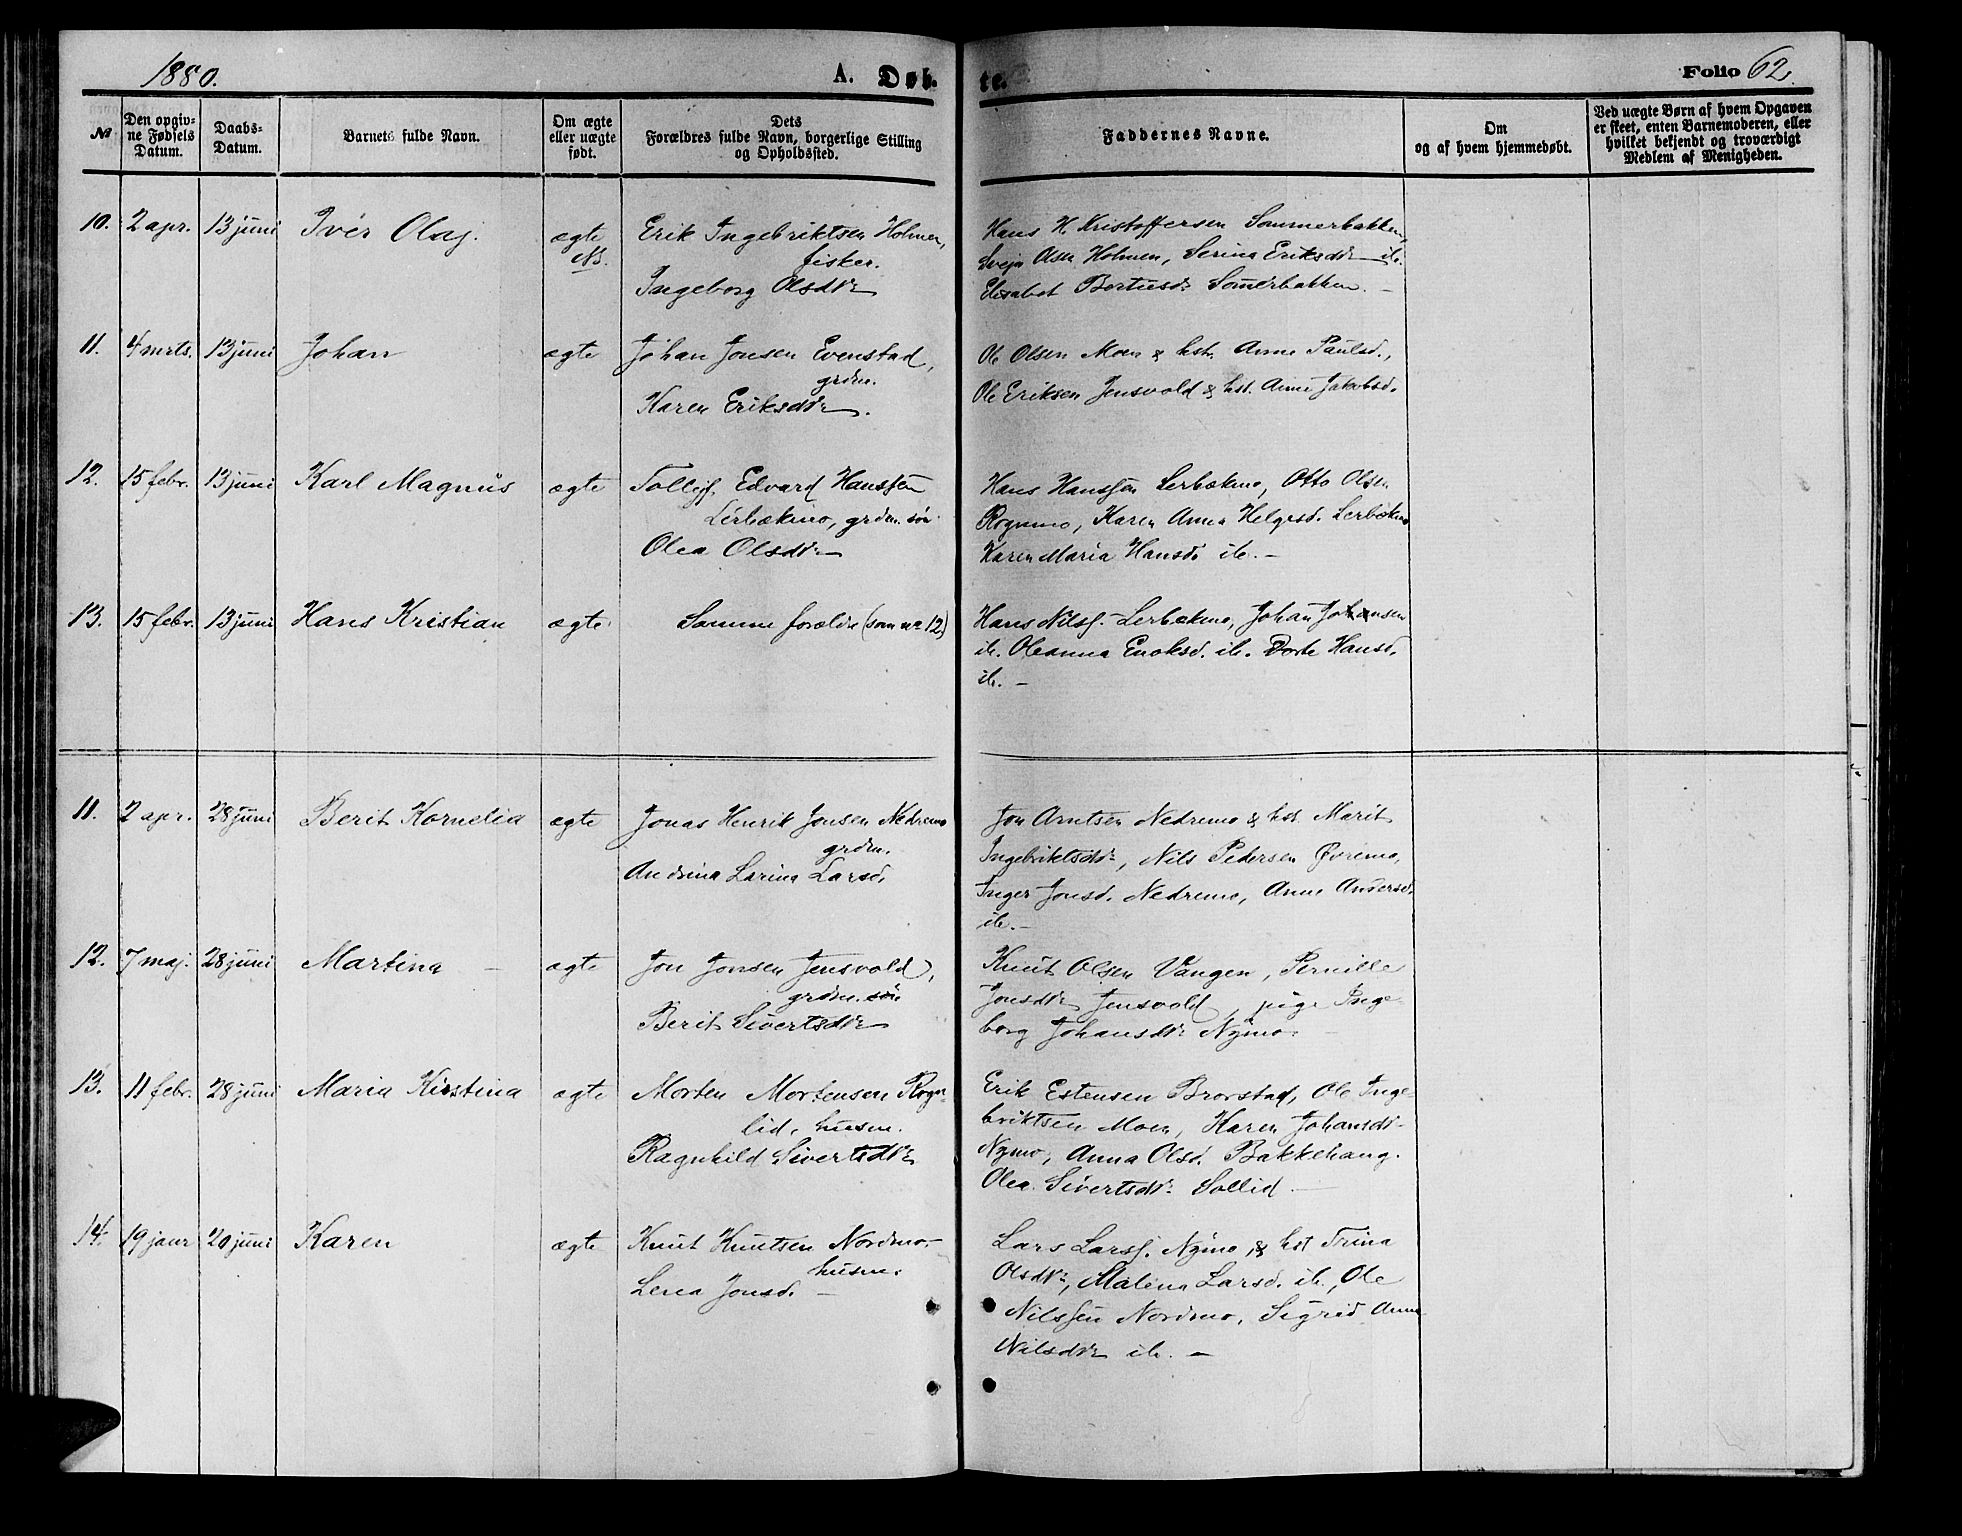 1880.
A. Døb-
te.
Folio 62.
No
Den opgiv-
ne Fødsels
Datum.
Daabs-
Datum.
Barnets fulde Navn.
Om ægte
eller uægte
født.
Dets
Forældres fulde Navn, borgerlige Stilling
og Opholdssted.
Faddernes Navne.
Om
og af hvem hjemmedøbt.
Ved uægte Børn af hvem Opgaven
er skeet, enten Barnemoderen, eller
hvilket bekjendt og troværdigt
Medlem af Menigheden.
10. 2 apr. 13 juni Iver Olaj. ægte Erik Ingebriktsen Holmen,
NB. fisker.
Ingeborg Olsdtr
Hans H. Kristoffersen Sommerbakken,
Svejn Olsen Holmen, Serina Eriksdtr ib.
Elisabet Bertusdr Sommerbakken. –
11. 4 mrts. 13 juni Johan ægte Johan Jonsen Evenstad,
grdm.
Karen Eriksdtr.
Ole Olsen Moen & hst. Anne Paulsd.,
Ole Eriksen Jensvold & hst. Anne Jakobsd.
12. 15 febr. 13 juni Karl Magnus ægte Tollef Edvard Hanssen
Lerbækmo, grdm. søn.
Olea Olsdtr
Hans Hanssen Lerbækmo, Otto Olsen
Rognmo, Karen Anna Helgesd. Lerbækmo
Karen Maria Hansd. ib. –
13. 15 febr. 13 juni Hans Kristian ægte Samme forældre (som nr 12)
Hans Nilss. Lerbækmo, Johan Johansen
ib. Oleanna Enoksd. ib. Dorte Hansd.
ib. –
11. 2 apr. 28 juni Berit Kornelia ægte Jonas Henrik Jonsen Nedremo
grdm.
Andrina Larina Larsd.
Jon Arntsen Nedremo & hst. Marit
Ingebriktsdtr, Nils Pedersen Øvremo,
Inger Jonsd. Nedremo, Anne Andersd.
ib. –
12. 7 maj. 28 juni Martina – ægte Jon Jonsen Jensvold,
grdm. søn
Berit Sivertsdtr
Knut Olsen Vangen, Pernille
Jonsdtr Jensvold, pige Inge-
borg Johansdtr Nymo. –
13. 11 febr. 28 juni Maria Kirstina ægte Morten Mortensen Rogn-
lid, husm.
Ragnhild Sivertsdtr
Erik Estensen Brorstad, Ole Inge-
briktsen Moen, Karen Johansdtr
Nymo, Anna Olsd. Bakkehaug.
Olea Sivertsdtr Sollid –
14. 19 janr 20 juni Karen ægte Knut Knutsen Nordmo,
husm.
Lena Jonsd. –
Lars Larss. Nymo, & hst Trina
Olsdtr, Malena Larsd. ib., Ole
Nilssen Nordmo, Sigrid Anna
Nilsdtr ib. –